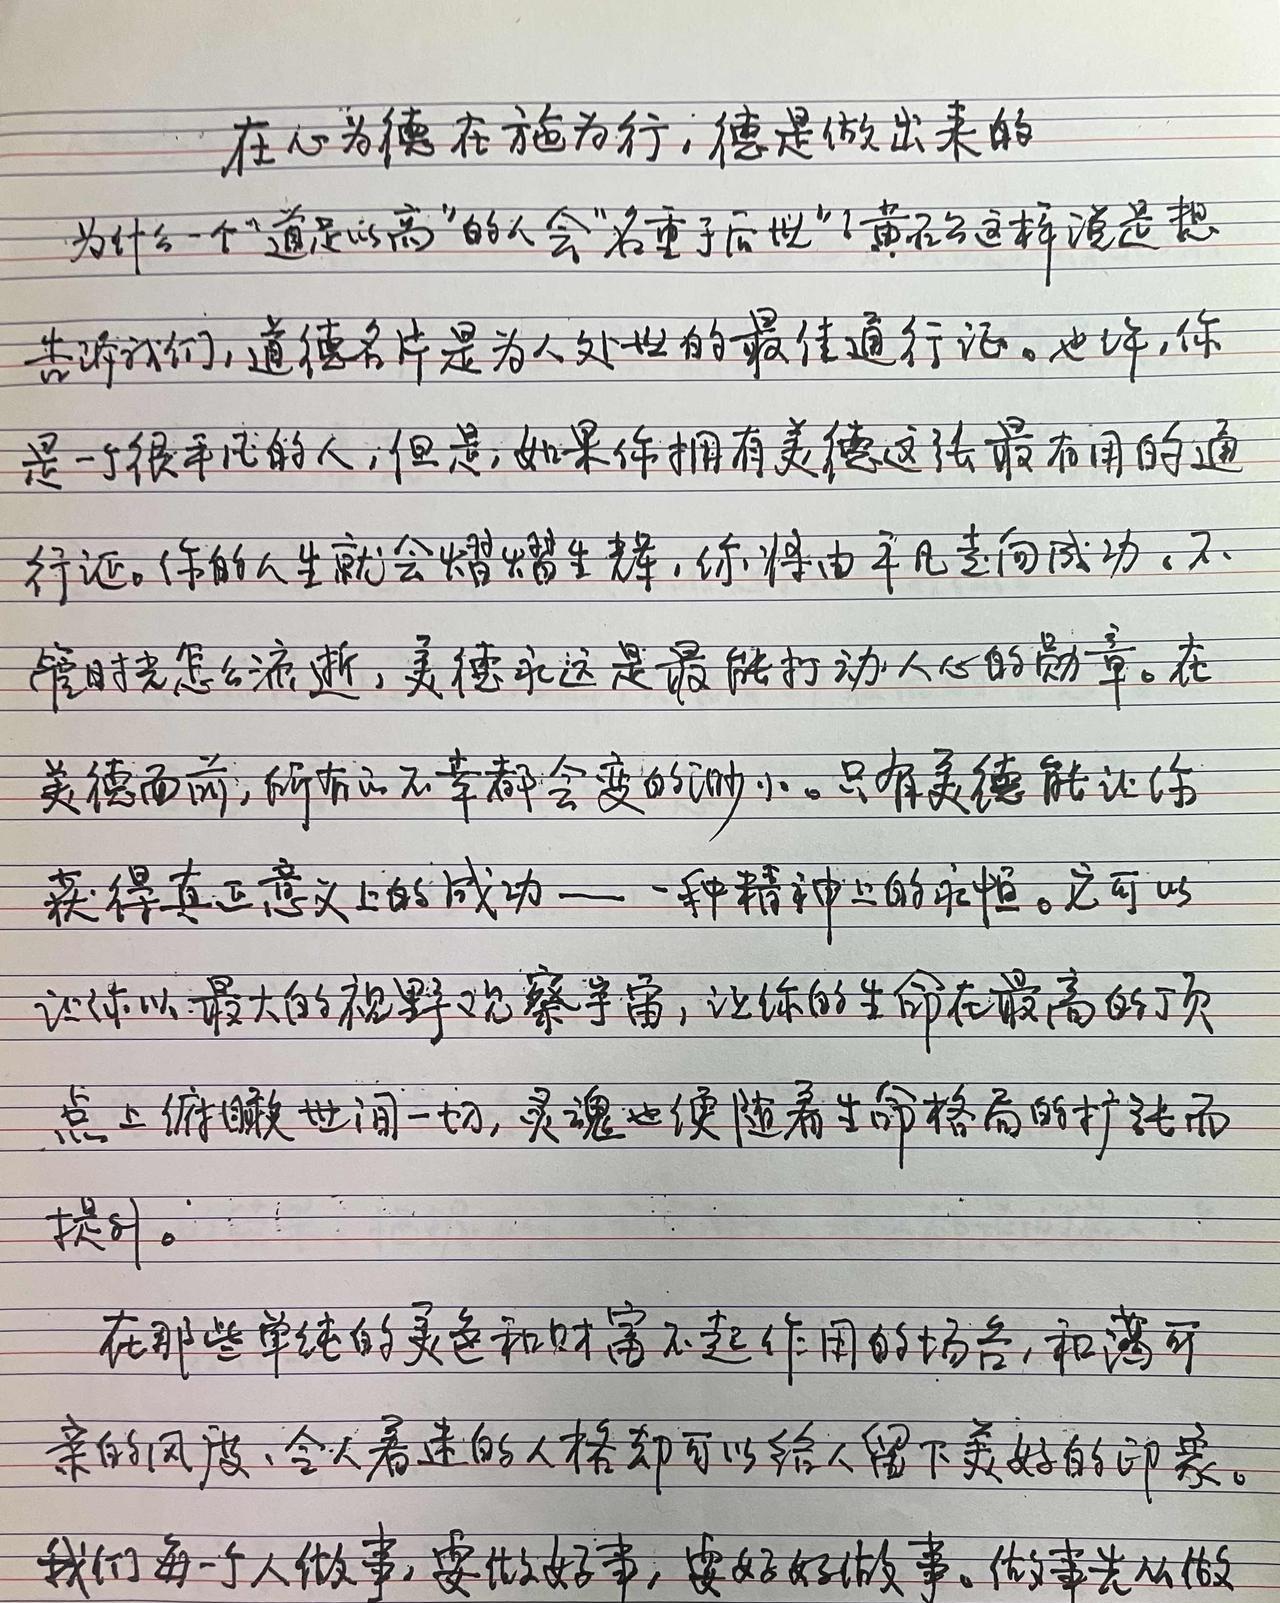 在心为德在施为行，德是做出来的
为什么一个“道足以高”的人会“名重于后世”？黄石公这样说是想
告诉我们，道德名片是为人处世的最佳通行证。也许，你
是一个很平凡的人，但是，如果你拥有美德这张最有用的通
行证。你的人生就会熠熠生辉，你将由平凡走向成功。不
管时光怎么流逝，美德永远是最能打动人心的勋章。在
美德面前，所有的不幸都会变的渺小。只有美德能让你
获得真正意义上的成功——一种精神上的永恒。它可以
让你以最大的视野观察宇宙，让你的生命在最高的顶
点上俯瞰世间一切，灵魂也便随着生命格局的扩张而
提升。
在那些单纯的美色和财富不起作用的场合，和蔼可
亲的风度、令人着迷的人格却可以给人留下美好的印象。
我们每一个人做事，要做好事，要好好做事。做事先从做